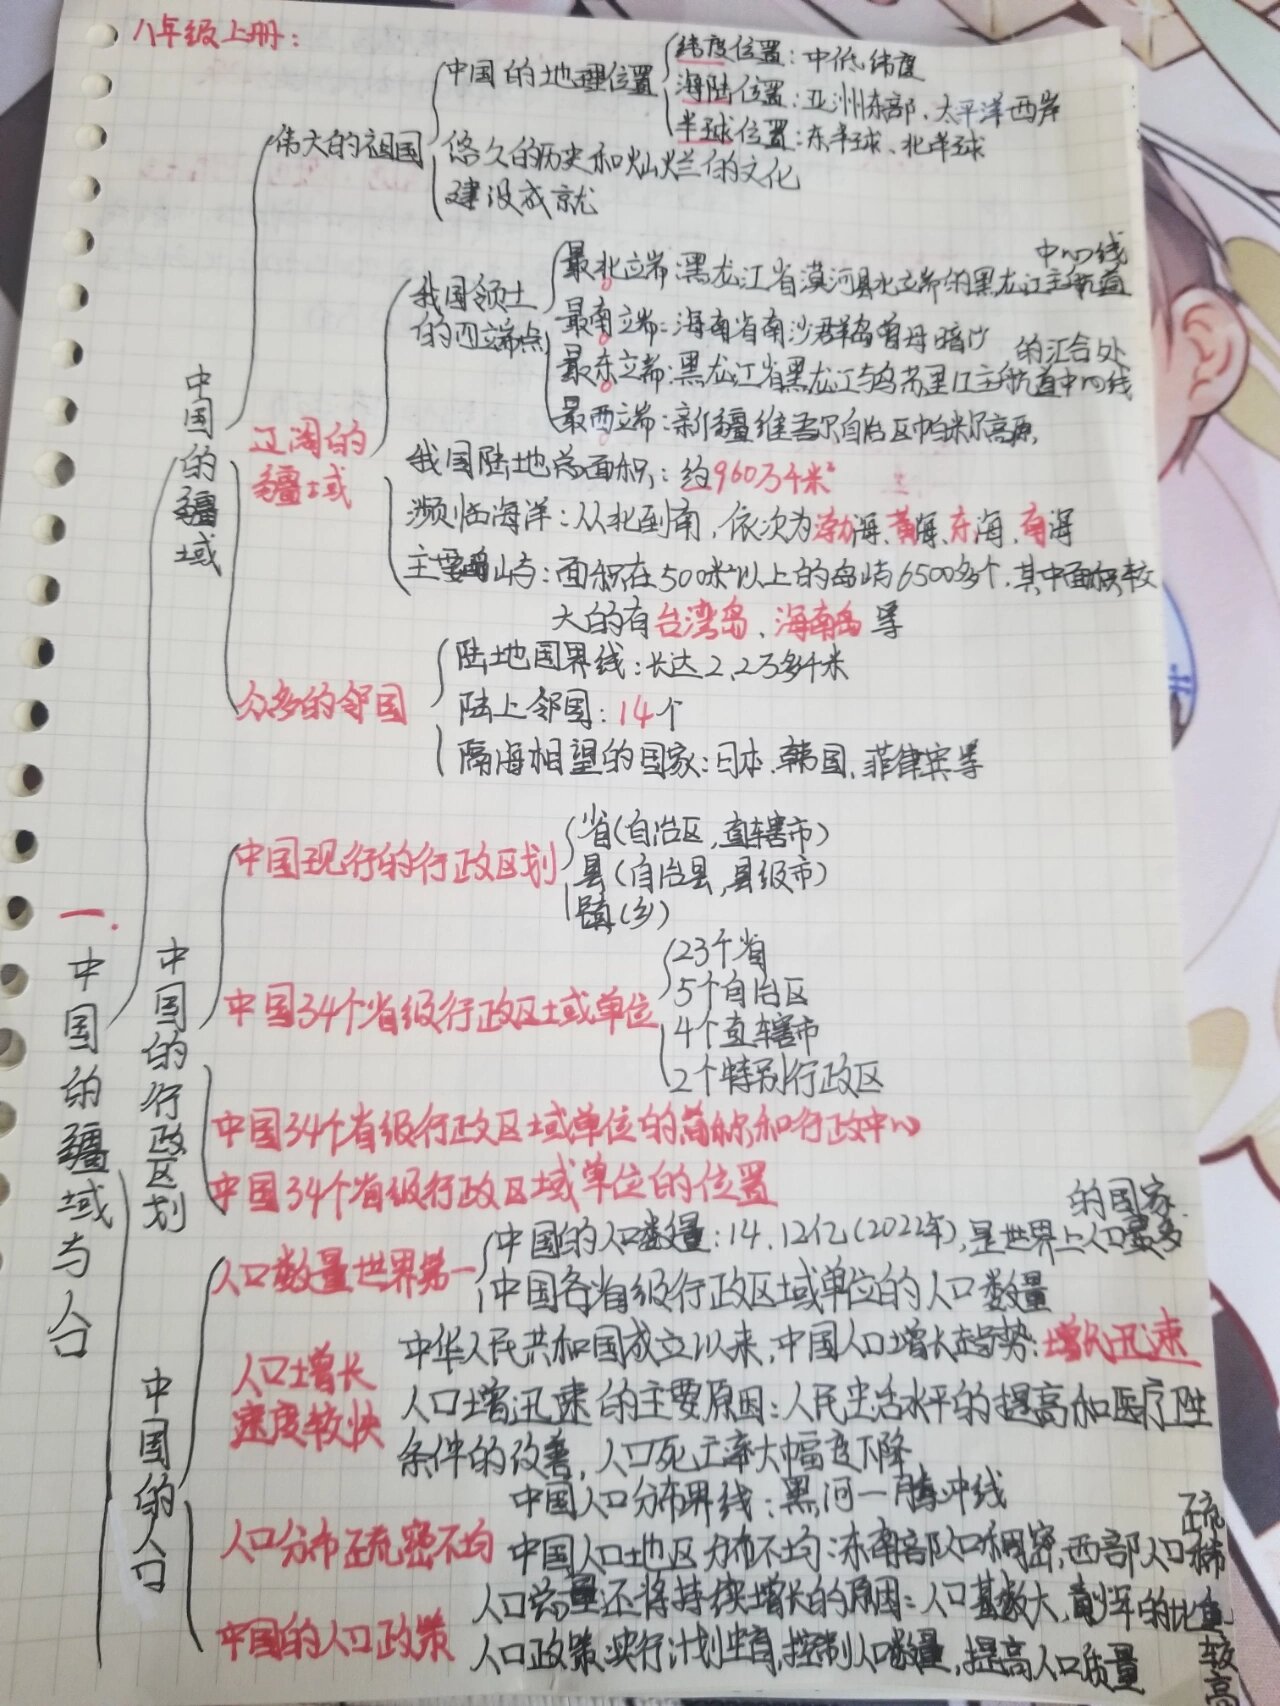 八年级上册:
一.
中国的疆域与人口
中国的疆域
伟大的祖国
中国的地理位置
纬度位置:中低纬度
海陆位置:亚洲东部、太平洋西岸
半球位置:东半球、北半球
悠久的历史和灿烂的文化
建设成就
辽阔的
疆域
我国领土
的四端点
最北端:黑龙江省漠河县北端的黑龙江主航道
中心线
最南端:海南省南沙群岛曾母暗沙
最东端:黑龙江省黑龙江与乌苏里江主航道中心线
的汇合处
最西端:新疆维吾尔自治区帕米尔高原
我国陆地总面积:约960万千米²
濒临海洋:从北到南,依次为渤海、黄海、东海、南海
主要岛屿:面积在500米²以上的岛屿6500多个,其中面积较
大的有台湾岛、海南岛等
众多的邻国
陆地国界线:长达2.2万多千米
陆上邻国:14个
隔海相望的国家:日本、韩国、菲律宾等
中国的行政区划
中国现行的行政区划
省(自治区,直辖市)
县(自治县,县级市)
镇(乡)
中国34个省级行政区域单位
23个省
5个自治区
4个直辖市
2个特别行政区
中国34个省级行政区域单位的简称和行政中心
中国34个省级行政区域单位的位置
中国的人口
人口数量世界第一
中国的人口数量:14.12亿(2022年),是世界上人口最多
的国家.
中国各省级行政区域单位的人口数量
人口增长
速度较快
中华人民共和国成立以来,中国人口增长趋势:增长迅速
人口增迅速的主要原因:人民生活水平的提高和医疗卫生
条件的改善,人口死亡率大幅度下降
人口分布疏密不均
中国人口分布界线:黑河一腾冲线
中国人口地区分布不均:东南部人口稠密,西部人口稀
疏
中国的人口政策
人口总量还将持续增长的原因:人口基数大,青少年的比重
较高
人口政策:实行计划生育,控制人口数量,提高人口质量